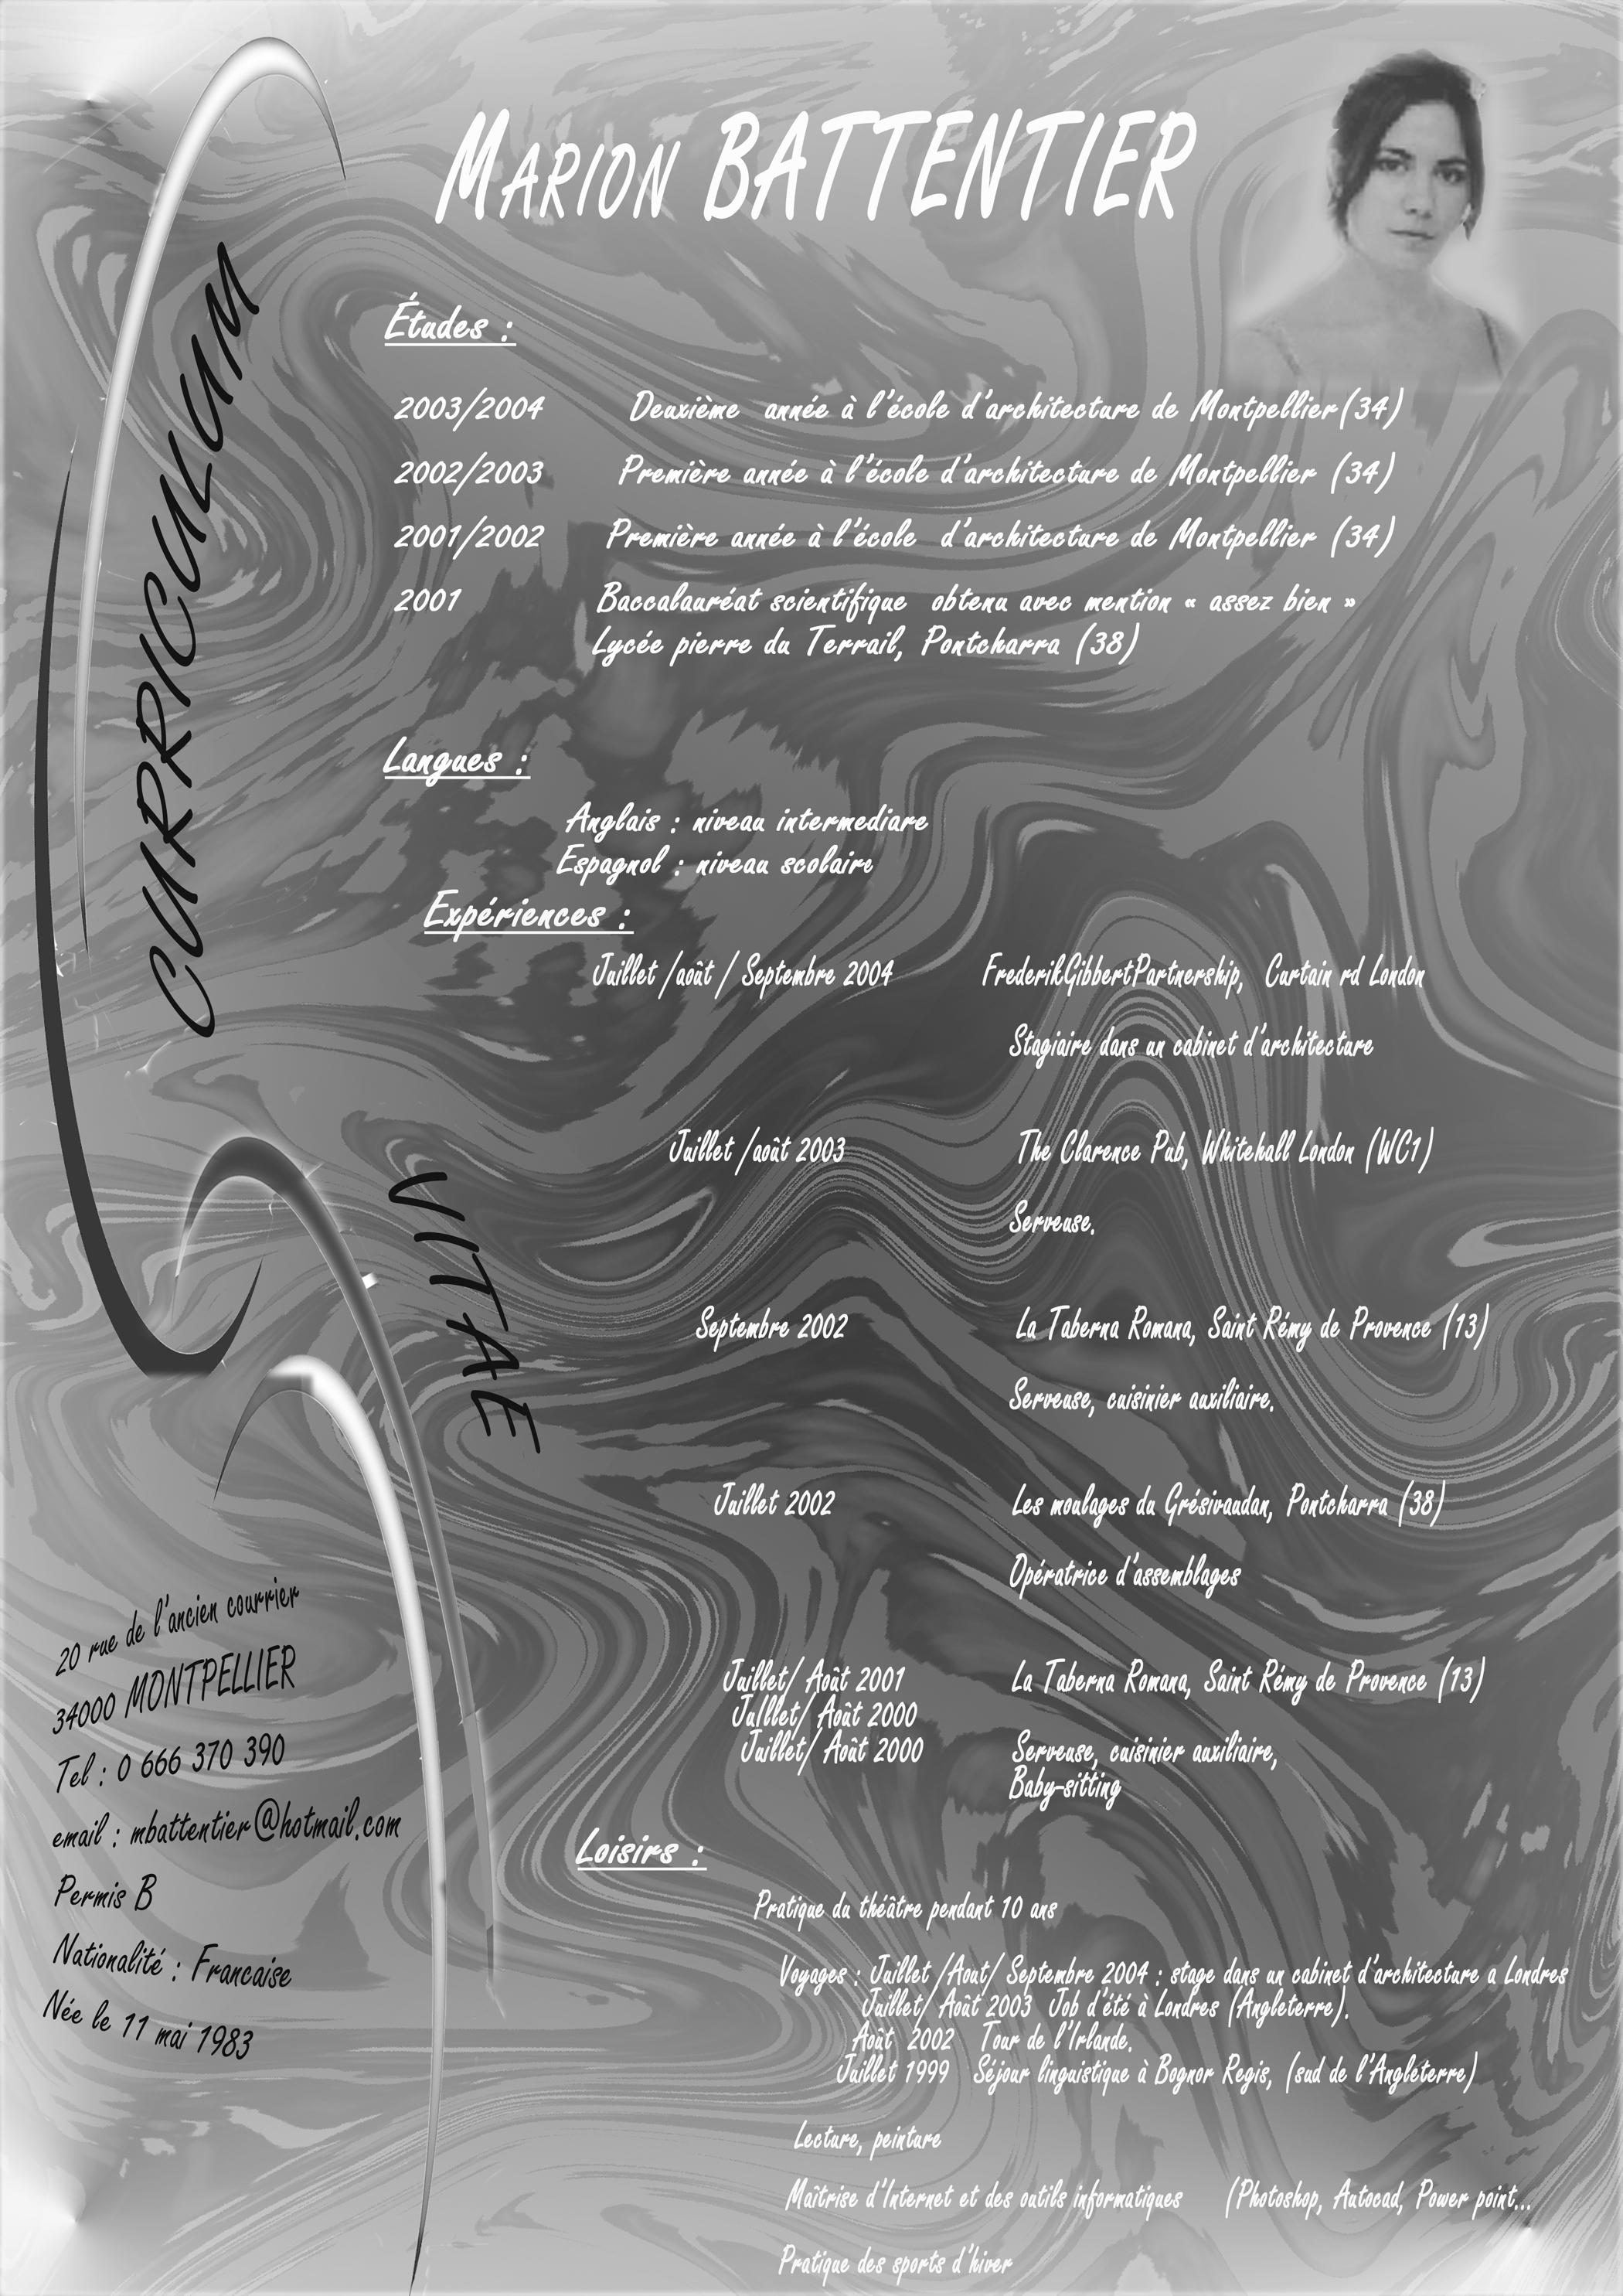 MARION BATTENTIER
CURRICULUM
VITAE
Études :
2003/2004 Deuxième année à l'école d'architecture de Montpellier(34)
2002/2003 Première année à l'école d'architecture de Montpellier (34)
2001/2002 Première année à l'école d'architecture de Montpellier (34)
2001 Baccalauréat scientifique obtenu avec mention « assez bien »
Lycée pierre du Terrail, Pontcharra (38)
Langues :
Anglais : niveau intermediare
Espagnol : niveau scolaire
Expériences :
Juillet /août / Septembre 2004 FrederikGibbertPartnership, Curtain rd London
Stagiaire dans un cabinet d'architecture
Juillet /août 2003 The Clarence Pub, Whitehall London (WC1)
Serveuse.
Septembre 2002 La Taberna Romana, Saint Rémy de Provence (13)
Serveuse, cuisinier auxiliaire.
Juillet 2002 Les moulages du Grésivaudan, Pontcharra (38)
Opératrice d'assemblages
Juillet/ Août 2001 La Taberna Romana, Saint Rémy de Provence (13)
Juillet/ Août 2000
Juillet/ Août 2000 Serveuse, cuisinier auxiliaire,
Baby-sitting
20 rue de l'ancien courrier
34000 MONTPELLIER
Tel : 0 666 370 390
email : mbattentier@hotmail.com
Permis B
Nationalité : Francaise
Née le 11 mai 1983
Loisirs :
Pratique du théâtre pendant 10 ans
Voyages : Juillet /Aout/ Septembre 2004 : stage dans un cabinet d'architecture a Londres
Juillet/ Août 2003 Job d'été à Londres (Angleterre).
Août 2002 Tour de l'Irlande.
Juillet 1999 Séjour linguistique à Bognor Regis, (sud de l'Angleterre)
Lecture, peinture
Maîtrise d'Internet et des outils informatiques (Photoshop, Autocad, Power point...
Pratique des sports d'hiver